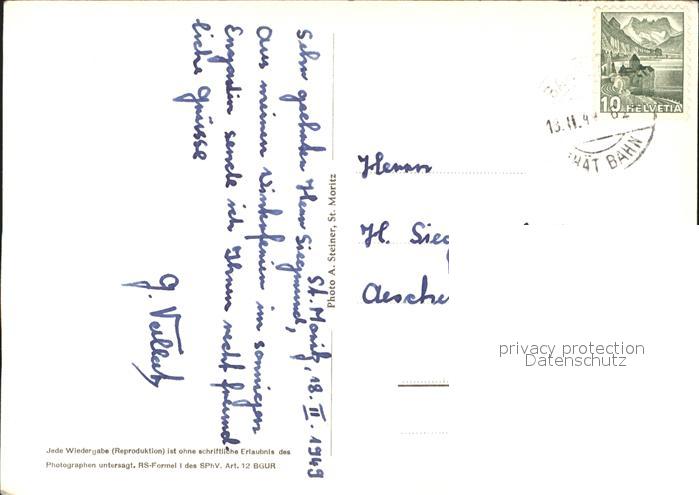 St. Moritz, 18. II. 1949
Sehr geehrter Herr Siegmund,
Aus meinen Winterferien im sonnigen
Engadin sende ich Ihnen recht freund-
liche Grüsse
Photo A. Steiner, St. Moritz
10 HELVETIA
HÄT BAHN
Herrn
H. Sieg
Aesche
privacy protection
Datenschutz
Jede Wiedergabe (Reproduktion) ist ohne schriftliche Erlaubnis des
Photographen untersagt. RS-Formel I des SPhV. Art. 12 BGUR